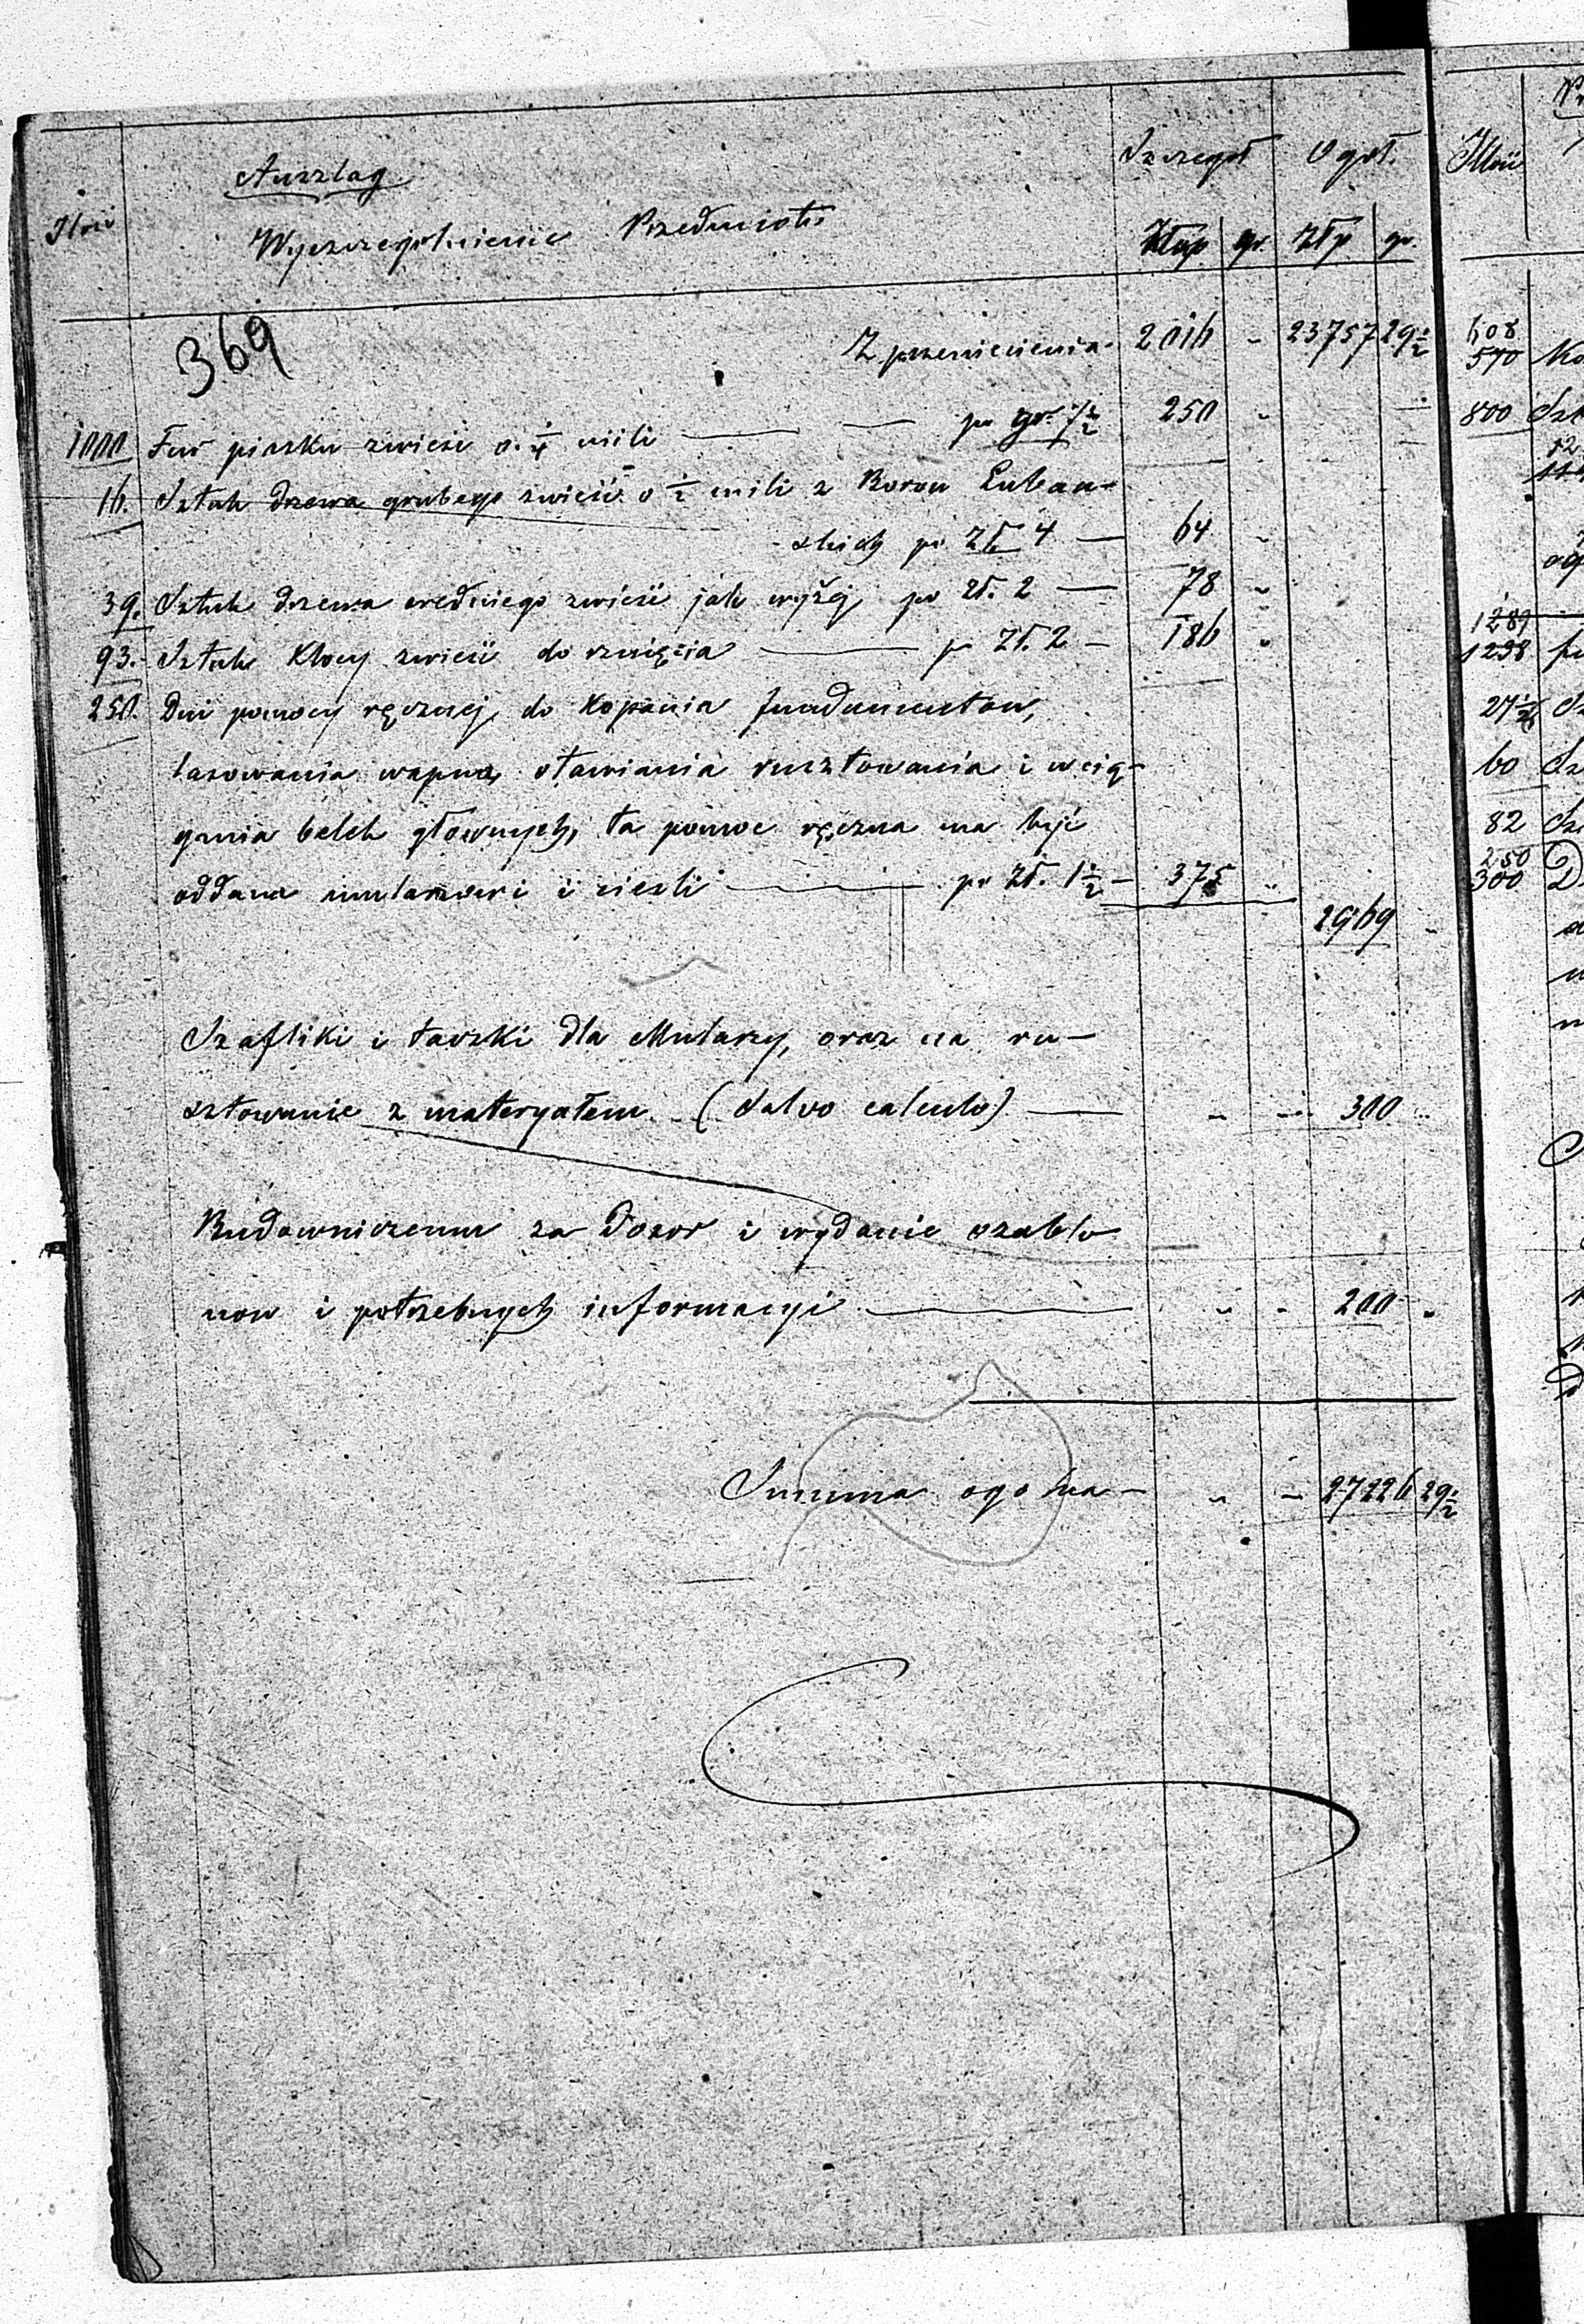 Anszlag
Ilość Wyszczegolnienie Przedmiotu Szczegoł Ogoł.
Złup gr. Złp gr.
369
Z przeniesienia 2016 „ 23757 29 1/2
1000 Fur piasku zwieść o 1/4 mili — — po gr. 7 1/2 250 „
16. Sztuk drzewa grubego zwieść o 1/2 mili z Borow Luban-
skich po Zł. 4 — 64 „
39. Sztuk drzewa średniego zwieść jak wyżej po Zł. 2 — 78 „
93. Sztuk Klocy zwieść do rznięcia — po Zł. 2 — 186 „
250. Dni pomocy ręcznej do Kopania fundamentow,
lasowania wapna, stawiania rusztowania i wcią-
gania belek głownych, ta pomoc ręczna ma być
oddana mularzowi i cieśli — po Zł. 1 1/2 — 375 „
2969 „
Szafliki i taczki dla Mularzy, oraz na ru-
sztowanie z materyałem (Salvo calculo) — „ — 300 „
Budowniczemu za dozor i wydanie szablo
now i potrzebnych informacyi — „ „ 200 „
Summa ogolna — „ — 27226 29 1/2
Ilość
608
570
800
1289
1298
60
82
250
300